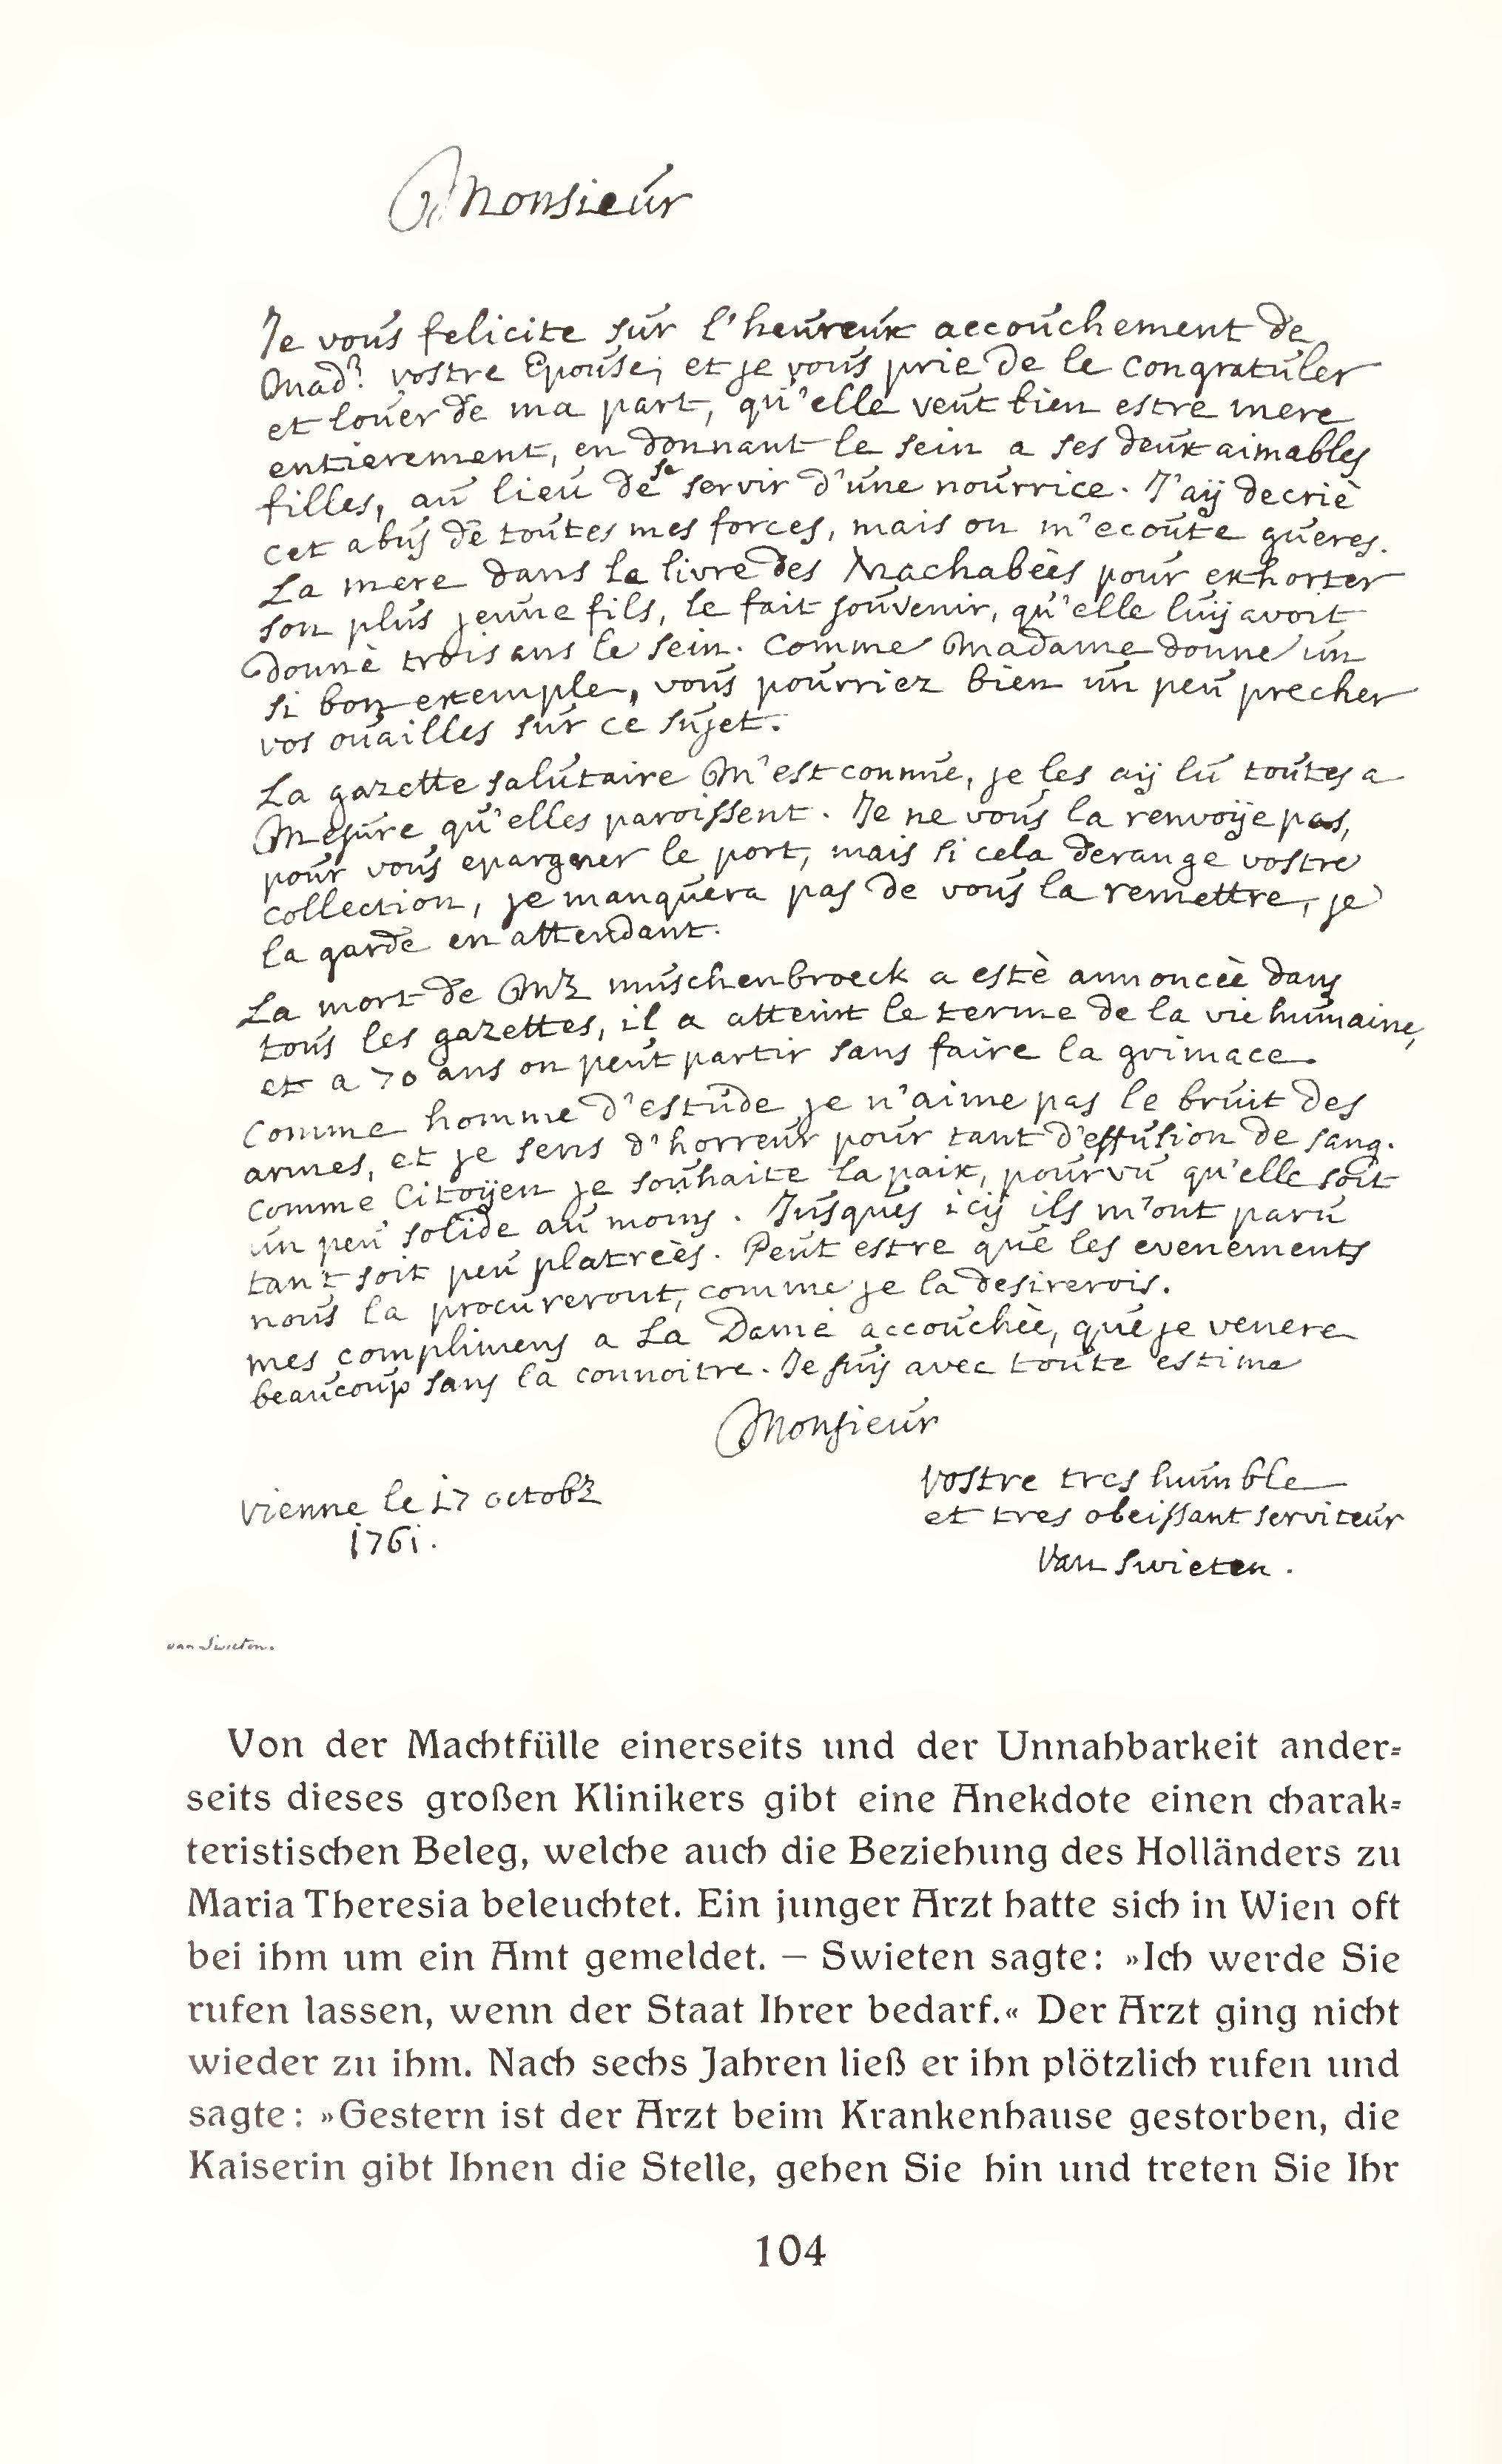 Monsieur
Je vous felicite sur l'heureux accouchement de
Mad.e vostre Epouse, et je vous prie de le congratuler
et louer de ma part, qu'elle veut bien estre mere
entierement, en donnant le sein a ses deux aimables
filles, au lieu de se servir d'une nourrice. J'aÿ decriè
cet abus de toutes mes forces, mais on m'ecoute gueres.
La mere dans le livre des Machabeès pour exhorter
son plus jeune fils, le fait souvenir, qu'elle luÿ avoit
donnè trois ans le sein. Comme Madame donne un
si bon exemple, vous pourriez bien un peu precher
vos ouailles sur ce sujet.
La gazette salutaire M'est connue, je les aÿ lu toutes a
Mesure qu'elles paroissent. Je ne vous la renvoÿe pas,
pour vous epargner le port, mais si cela derange vostre
collection, je manquera pas de vous la remettre, je
la garde en attendant.
La mort de Mr muschenbroeck a estè annonceè dans
tous les gazettes, il a atteint le terme de la vie humaine,
et a 70 ans on peut partir sans faire la grimace.
Comme homme d'estude je n'aime pas le bruit des
armes, et je sens d'horreur pour tant d'effusion de sang.
Comme Citoÿen je souhaite la paix, pourvu qu'elle soit
un peu solide au moins. Jusques icÿ ils m'ont paru
tant soit peu platreès. Peut estre que les evenements
nous la procureront, comme je la desirerois.
mes complimens a La Dame accoucheè, que je venere
beaucoup sans la connoitre. Je suis avec toute estime
Monsieur
Vostre tres humble
et tres obeissant serviteur
Van Swieten.
Vienne le 17 octobr
1761.
van Swieten.
Von der Machtfülle einerseits und der Unnahbarkeit ander-
seits dieses großen Klinikers gibt eine Anekdote einen charak-
teristischen Beleg, welche auch die Beziehung des Holländers zu
Maria Theresia beleuchtet. Ein junger Arzt hatte sich in Wien oft
bei ihm um ein Amt gemeldet. — Swieten sagte: »Ich werde Sie
rufen lassen, wenn der Staat Ihrer bedarf.« Der Arzt ging nicht
wieder zu ihm. Nach sechs Jahren ließ er ihn plötzlich rufen und
sagte: »Gestern ist der Arzt beim Krankenhause gestorben, die
Kaiserin gibt Ihnen die Stelle, gehen Sie hin und treten Sie Ihr
104